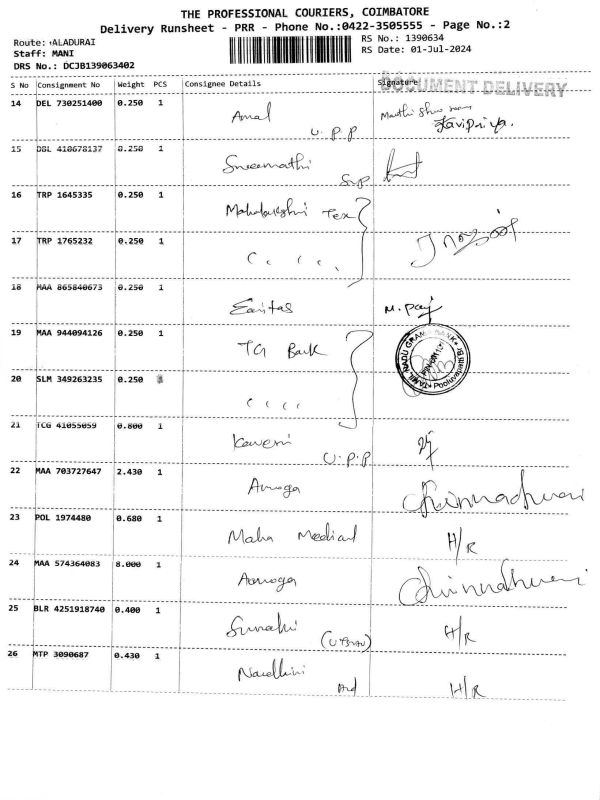 THE PROFESSIONAL COURIERS, COIMBATORE
Delivery Runsheet - PRR - Phone No.:0422-3505555 - Page No.:2
Route: ALADURAI
Staff: MANI
DRS No.: DCJB139063402
RS No.: 1390634
RS Date: 01-Jul-2024
S No Consignment No Weight PCS Consignee Details Signature
DOCUMENT DELIVERY
14 DEL 730251400 0.250 1 Amal
U.P.P
Kavipriya.
15 DBL 410678137 0.250 1 Sreemathi
16 TRP 1645335 0.250 1 Mahalakshmi Tex
17 TRP 1765232 0.250 1 " " " "
18 MAA 865840673 0.250 1 Earitas
19 MAA 944094126 0.250 1 TG Bank
TAMIL NADU GRAMA BANK
Pooluvapatti
20 SLM 349263235 0.250 " " " "
21 TCG 41055059 0.800 1 Kaveri
U.P.P
22 MAA 703727647 2.430 1 Amoga Chinnadhurai
23 POL 1974480 0.680 1 Maha Medical H/R
24 MAA 574364083 8.000 1 Aamoga Chinnadhurai
25 BLR 4251918740 0.400 1 H/R
26 MTP 3090687 0.430 1 Nandhini H/R